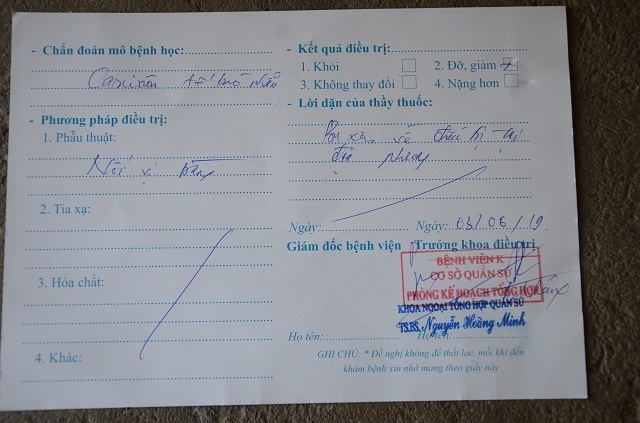 - Chẩn đoán mô bệnh học:
- Phương pháp điều trị:
1. Phẫu thuật:
Nối vị tràng
2. Tia xạ:
3. Hóa chất:
4. Khác:
- Kết quả điều trị:
1. Khỏi
2. Đỡ, giảm
3. Không thay đổi
4. Nặng hơn
- Lời dặn của thầy thuốc:
về điều trị tại
địa phương
Ngày:
Ngày: 03/06/19
Giám đốc bệnh viện
Trưởng khoa điều trị
BỆNH VIỆN K
CƠ SỞ QUÁN SỨ
PHÒNG KẾ HOẠCH TỔNG HỢP
KHOA NGOẠI TỔNG HỢP QUÁN SỨ
TS.BS. Nguyễn Hoàng Minh
Họ tên:
Họ tên:
GHI CHÚ: * Đề nghị không để thất lạc, mỗi khi đến
khám bệnh xin nhớ mang theo giấy này